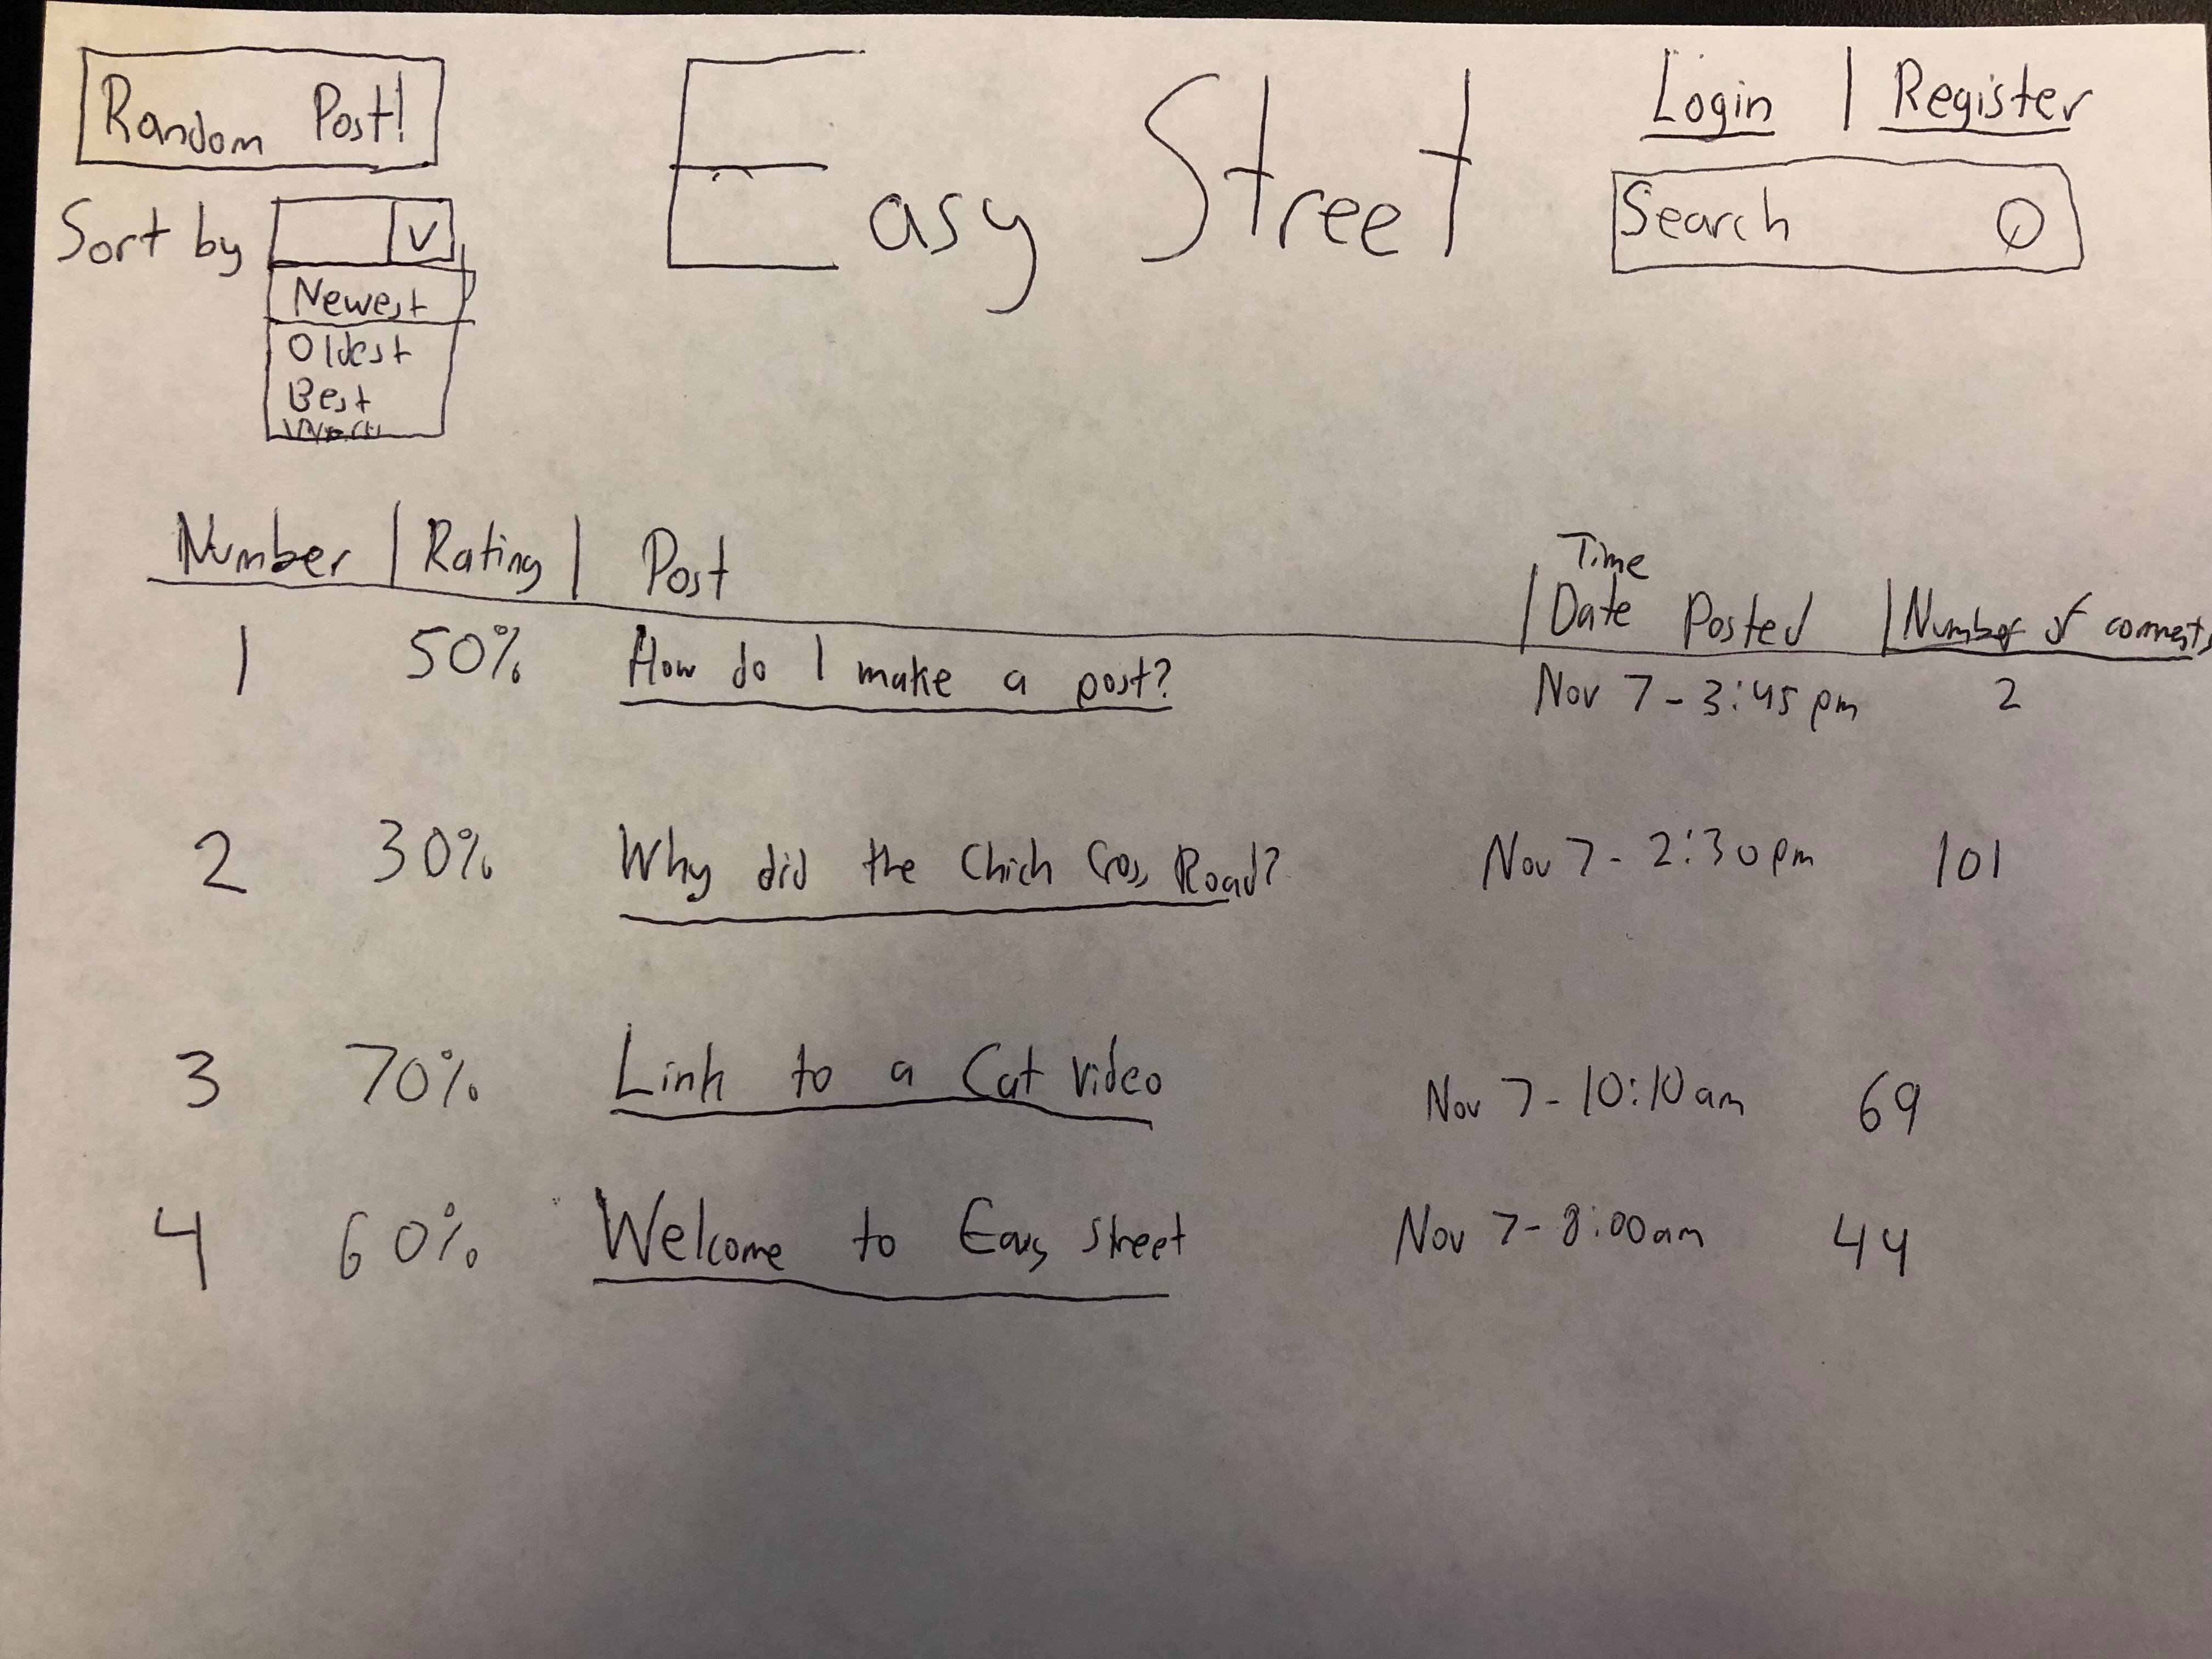 Random Post!
Easy Street
Login | Register
Sort by
V
Search
Newest
Oldest
Best
Number | Rating | Post | Time Date Posted | Number of comments
1 50% How do I make a post? Nov 7 - 3:45 pm 2
2 30% Why did the Chich Cross Road? Nov 7 - 2:30 pm 101
3 70% Link to a Cat video Nov 7 - 10:10 am 69
4 60% Welcome to Easy Street Nov 7 - 8:00 am 44